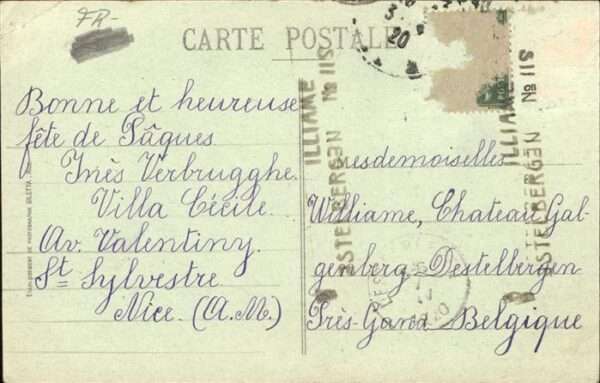 FR-
CARTE POSTALE
3.
20
Bonne et heureuse
fête de Pâques
Inès Verbrugghe.
Villa Cécile.
Av. Valentiny.
St Sylvestre
Nice. (A.M.)
esdemoiselles
Williame, Chateau Gal-
genberg, Destelbergen
Près-Gand Belgique
ILLIAME
No 115
ESTELBERGEN
ILLIAME
No 115
ESTELBERGEN